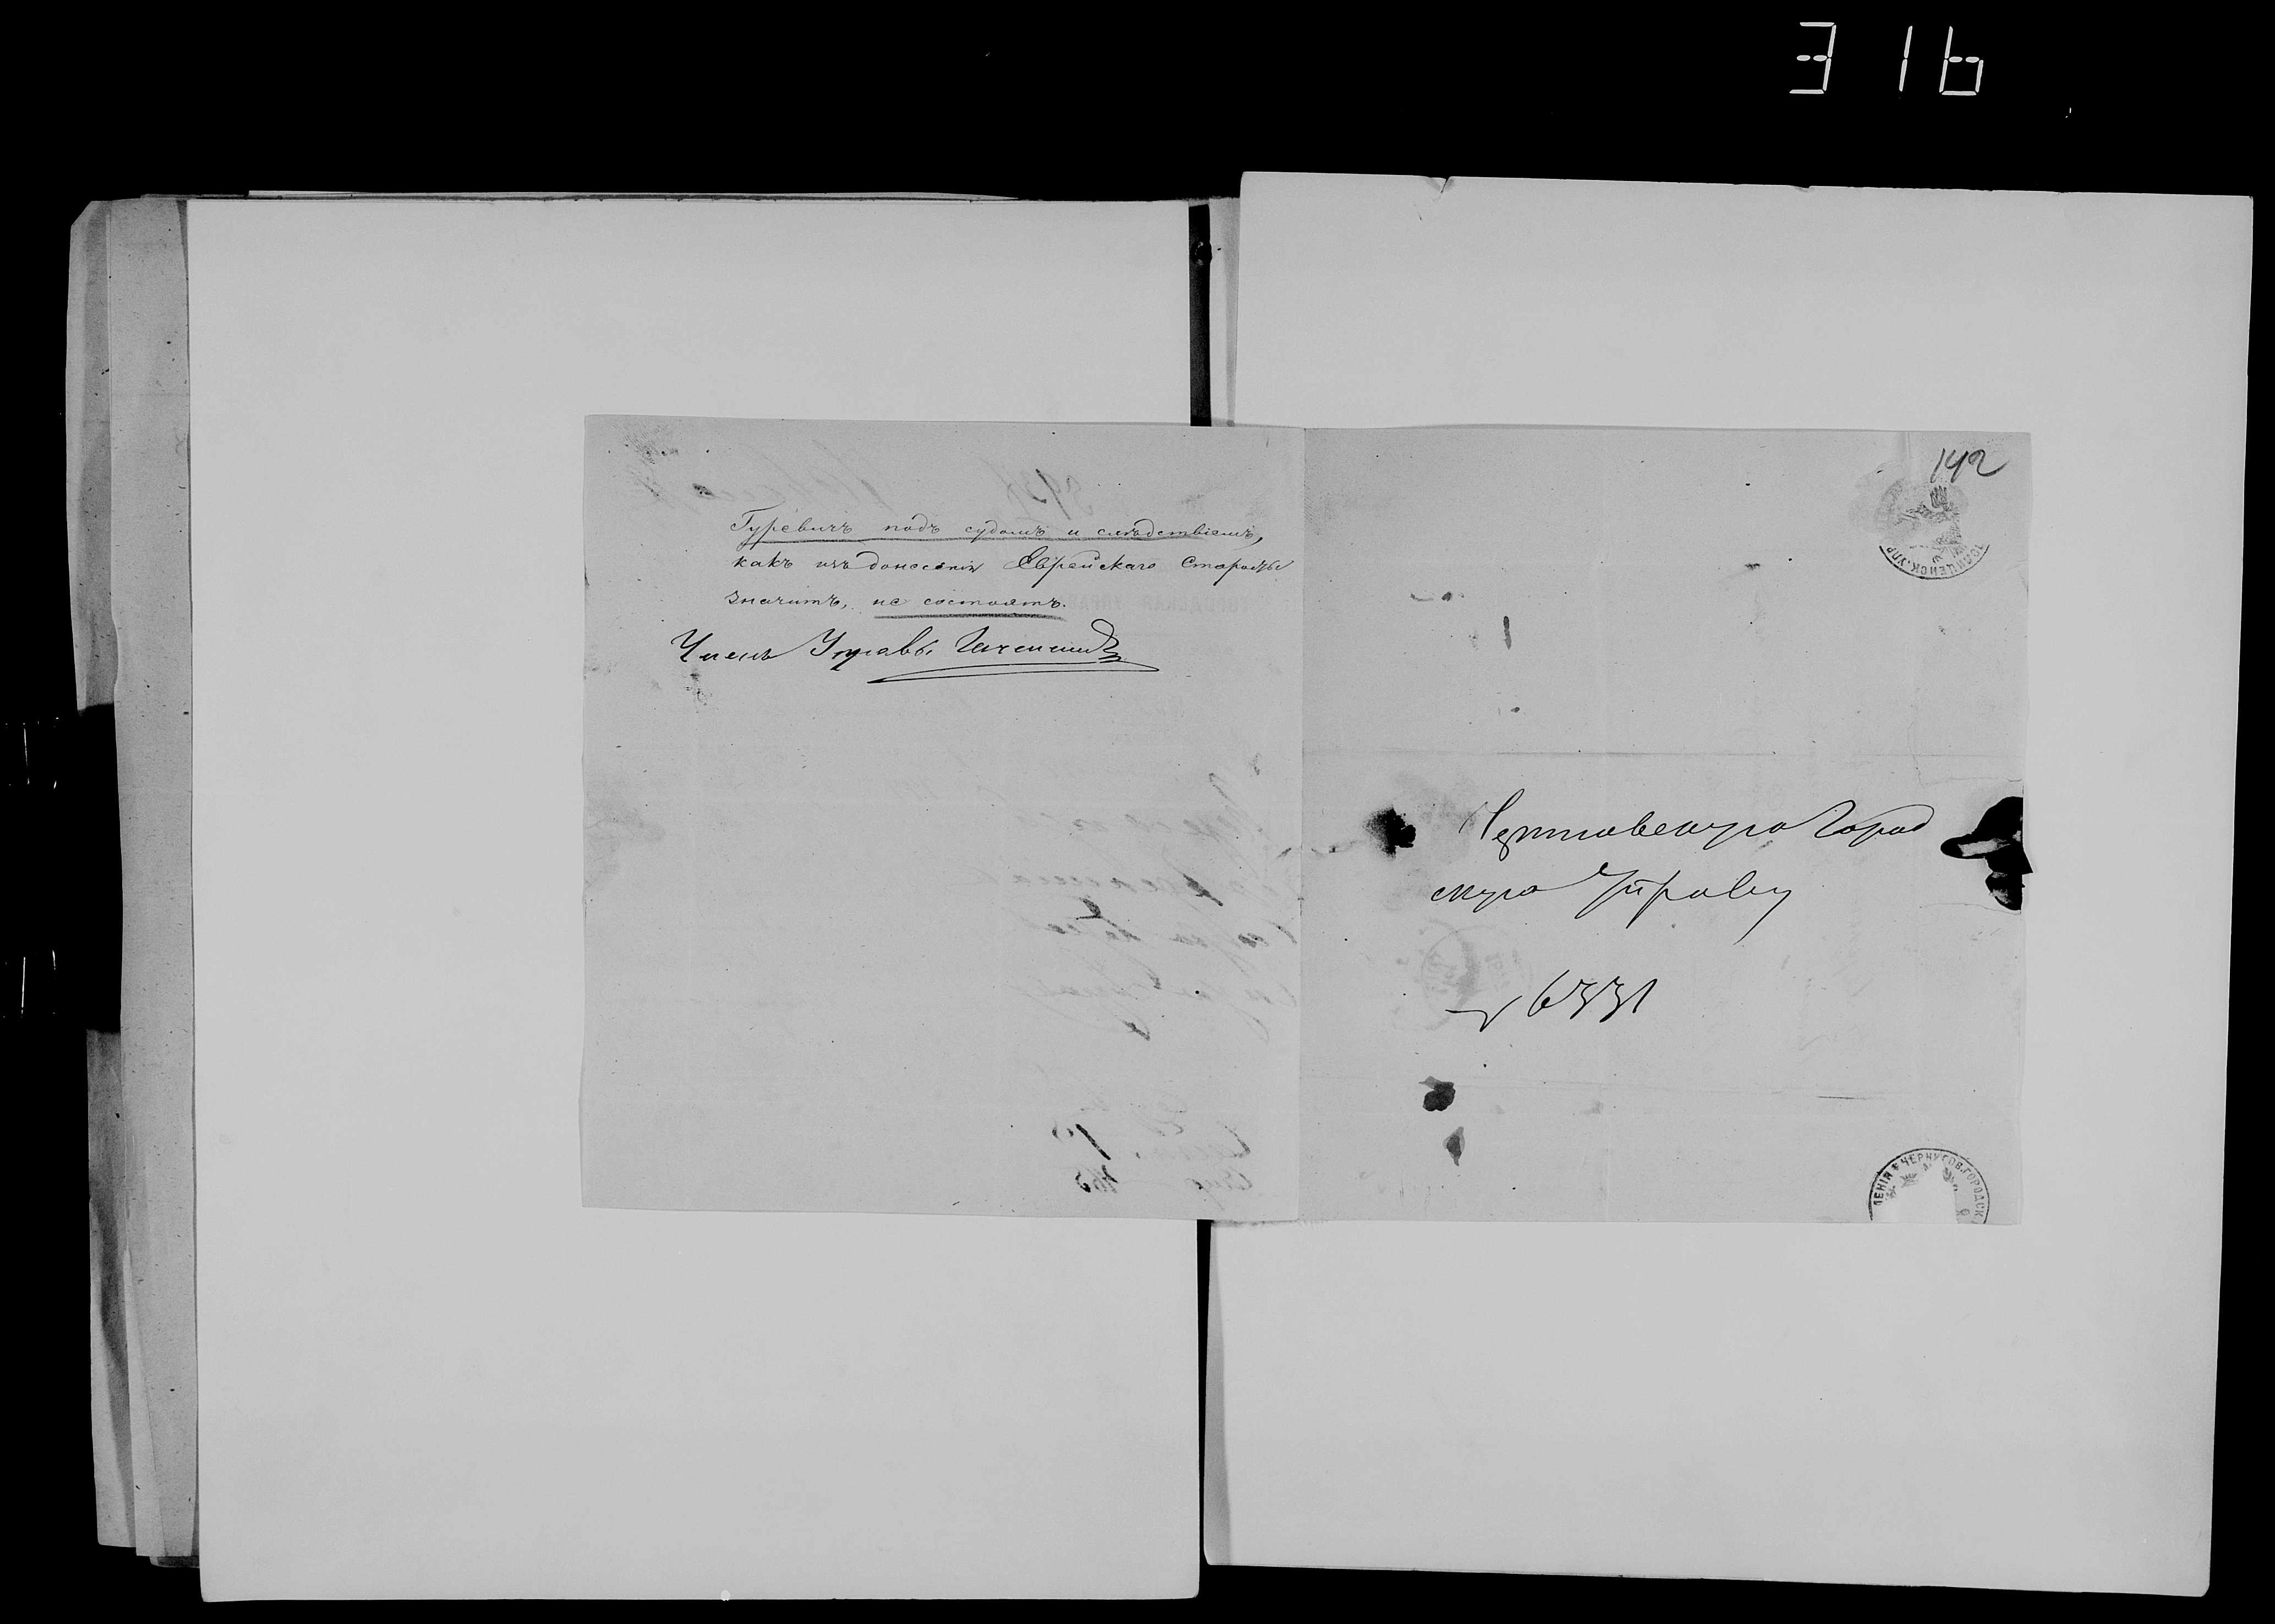 316
Гуревичъ подъ судомъ и слѣдствіемъ,
какъ изъ донесенія Еврейскаго Старосты
значитъ, не состоятъ.
Членъ Управы
142
ПОЛИЦЕЙСК. УПР
Черниговскую Город
скую Управу
№ 6331
ЛЕНІЯ ЧЕРНИГОВ. ГОРОДСК.